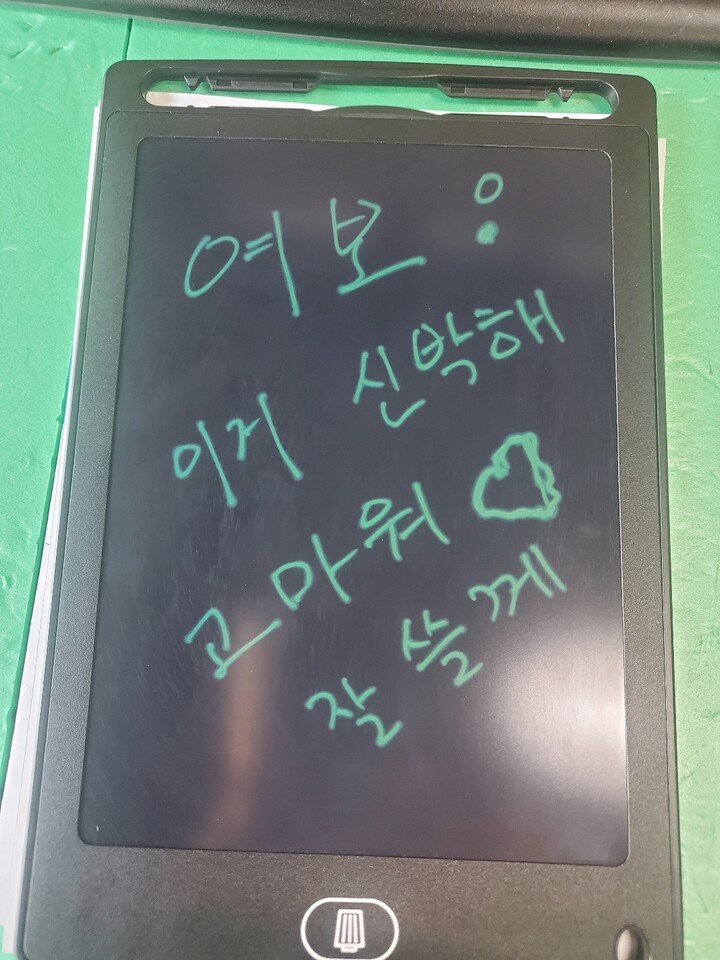 여보!
이거 신박해
고마워♡
잘 쓸께